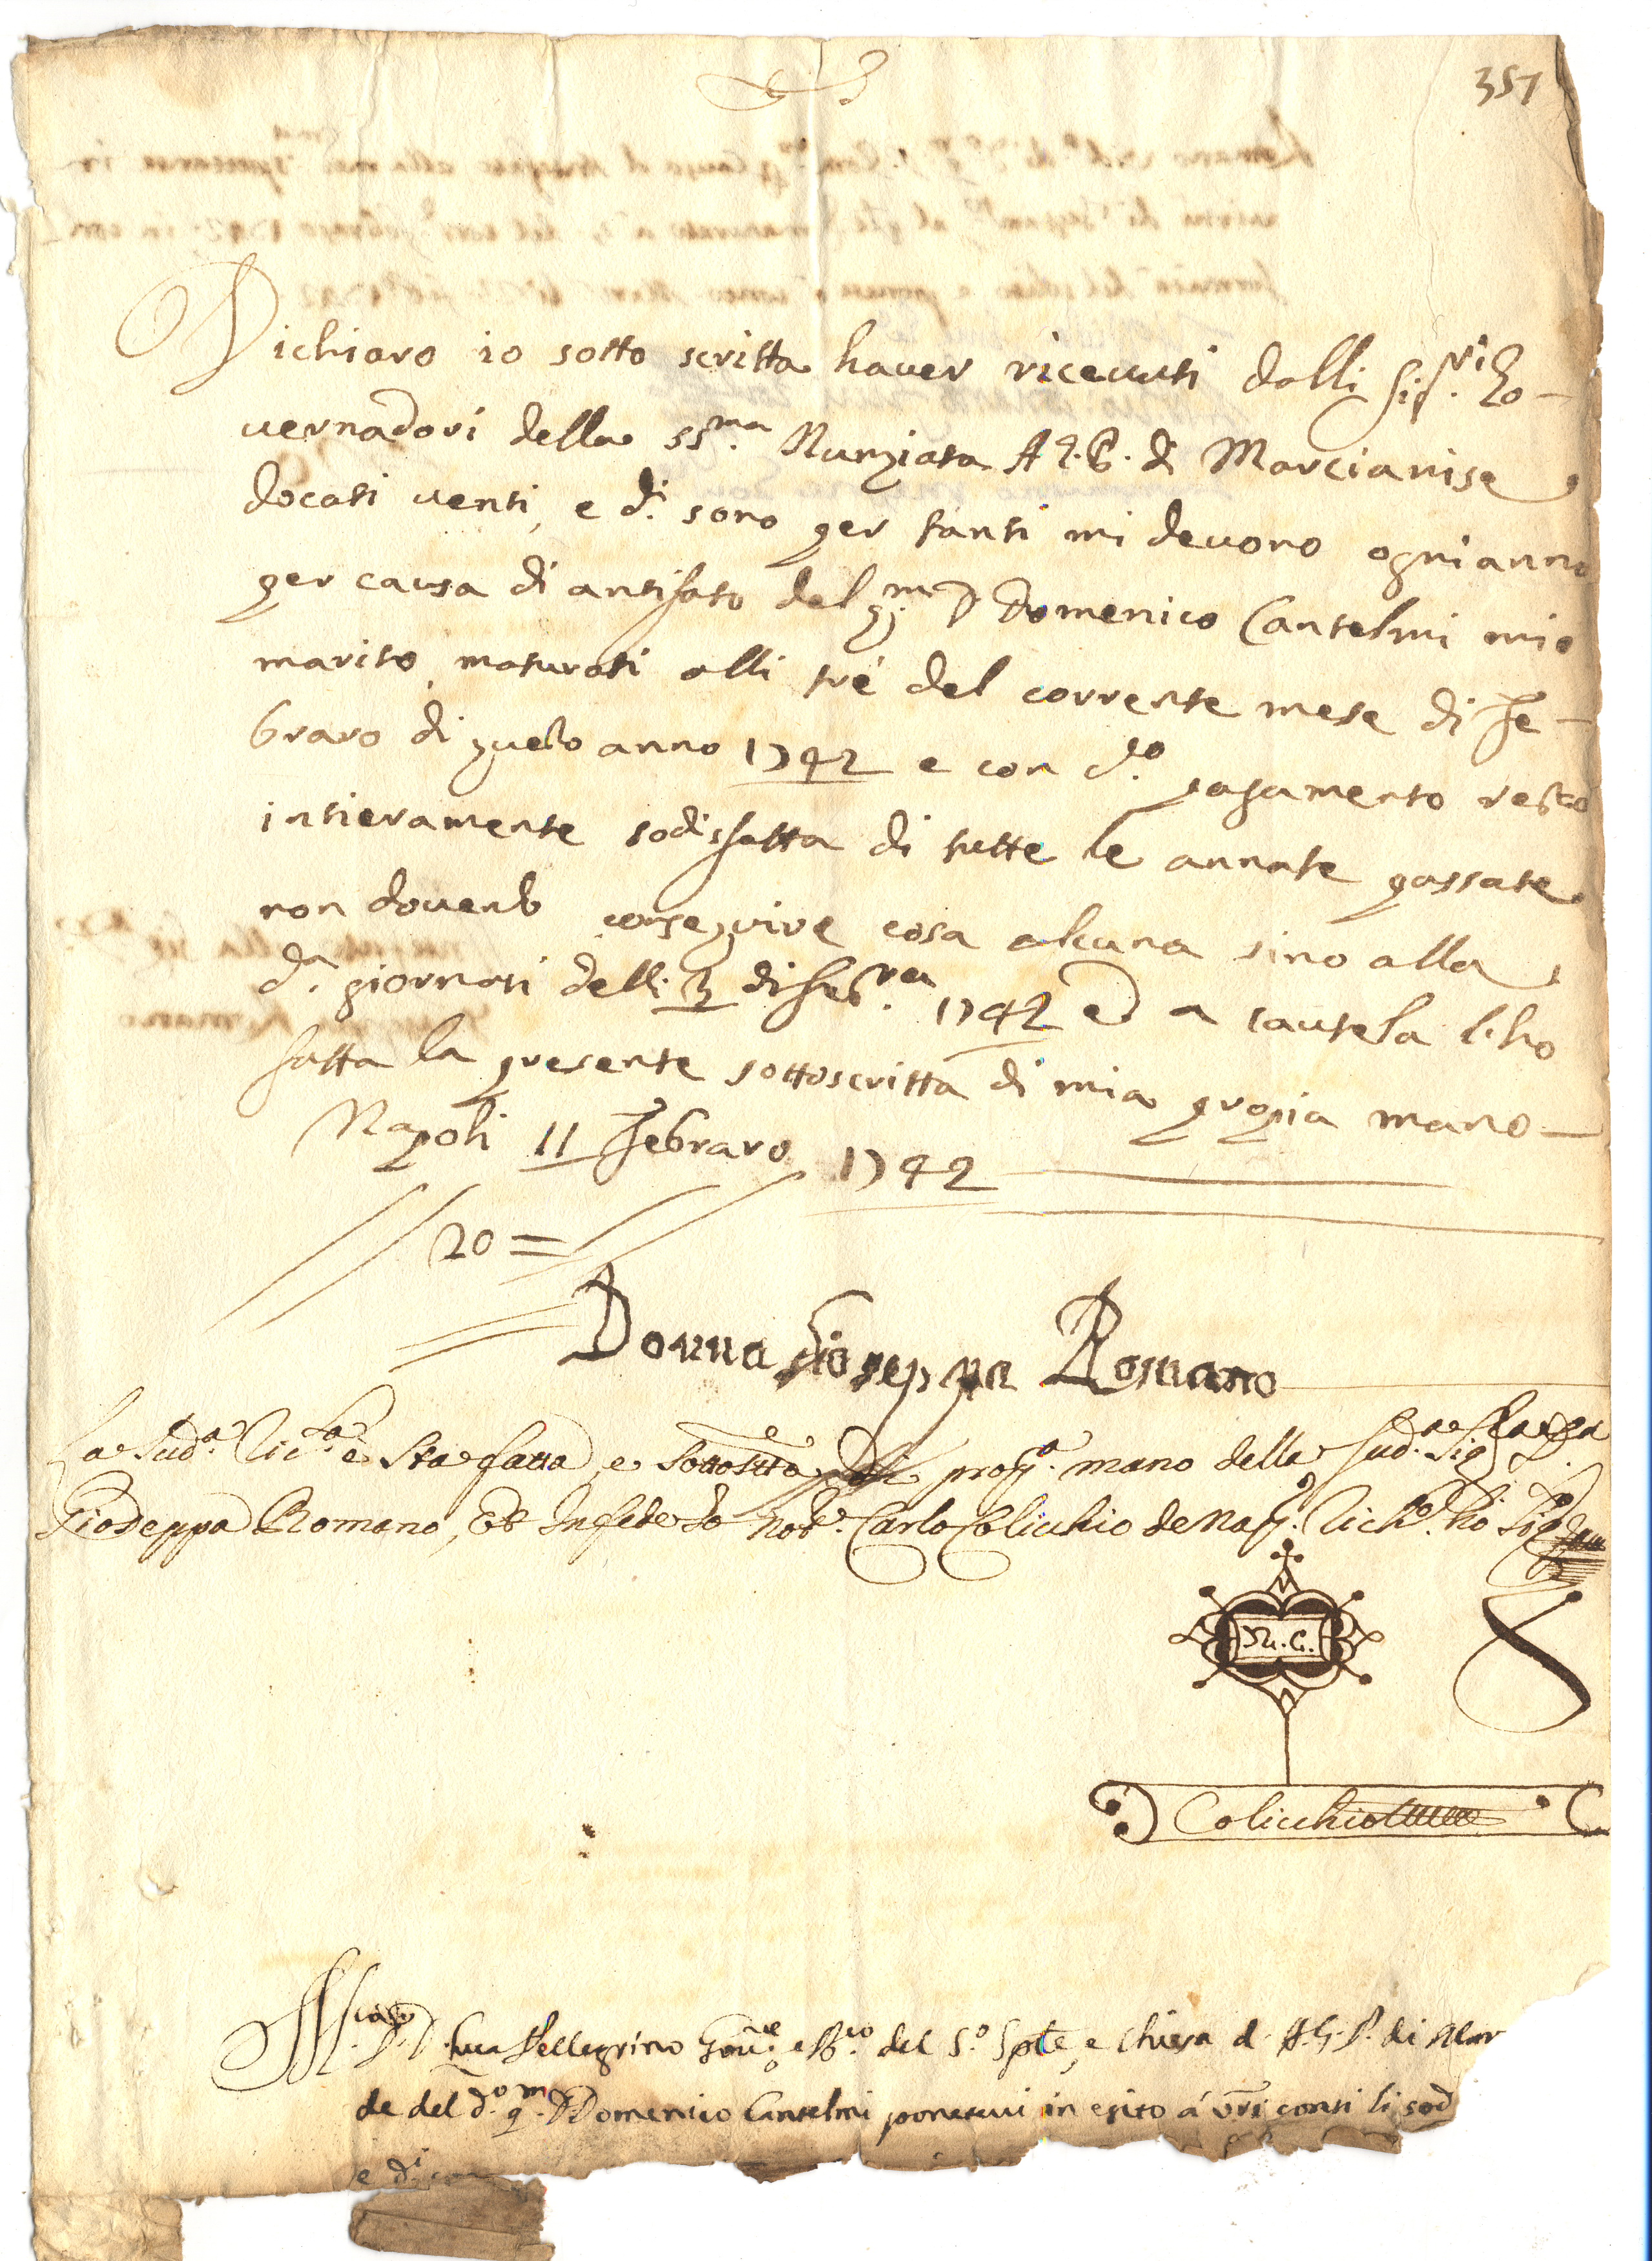 357
Dichiaro io sotto scritta haver ricevuti dalli Sig.ri Go-
vernadori della SS.ma Nunziata A.G.P. di Marcianise
docati venti, e d.i sono per tanti mi devono ogni anno
per causa di antifato del q.m D. Domenico Cantelmi mio
marito, maturati alli tré del corrente mese di Fe-
braro di questo anno 1742 e con d.o pagamento resto
intieramente sodisfatta di tutte le annate passate
non dovendo conseguire cosa alcuna sino alla
d.a giornati delli 3 di feb.ro 1742 e a cautela l'ho
fatta la presente sottoscritta di mia propia mano
Napoli 11 Febraro 1742
20 =
Donna Gioseppa Romano
La sud.a è stata fatta, e prop.a mano della sud.a Sig.ra D.
Gioseppa Romano, Et In fede Io Not.r Carlo Colicchio de Nap. ho Sig.to
N. C.
Colicchio
D. Luca Pellegrino Gov.re del S.o Sp.le, e Chiesa d. A.G.P. di Mar
de del d.o q.m D. Domenico Cantelmi ponetevi in esito á v̄ri conti li sod
e d.i